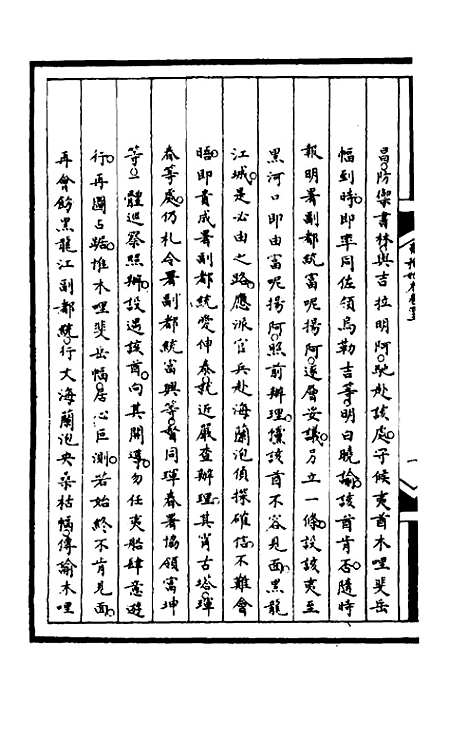 昌防禦書林與吉拉明阿馳赴該處守候夷酋木哩斐岳
幅到時即率同佐領烏勒吉等明白曉諭該酋肯否隨時
報明署副都統富呢揚阿逐層妥議另立一條設該夷至
黑河口即由富呢揚阿照前辦理儻該酋不容見面黑龍
江城是必由之路應派官兵赴海蘭泡偵探確信不難會
晤即責成署副都統愛伸泰就近嚴查辦理其肯古塔琿
春等處仍札令署副都統富興等督同琿春署協領富坤
等一體巡察照辦設遇該酋向其開導勿任夷船肆意遊
行再圖占踞惟木哩斐岳幅居心叵測若始終不肯見面
再會飭黑龍江副都統行文海蘭泡夾桑枯幅傳諭木哩